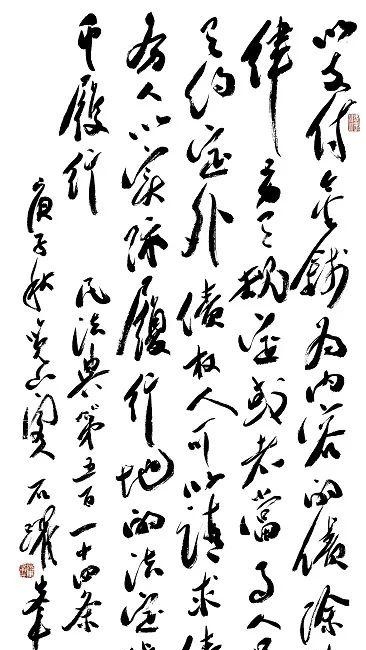 以支付金錢为内容的債除
律另有規定或者當事人
有约定外債权人可以請求債
务人以实际履行地的法定
币履行 民法典第五百一十四条
庚子秋 石躍峯